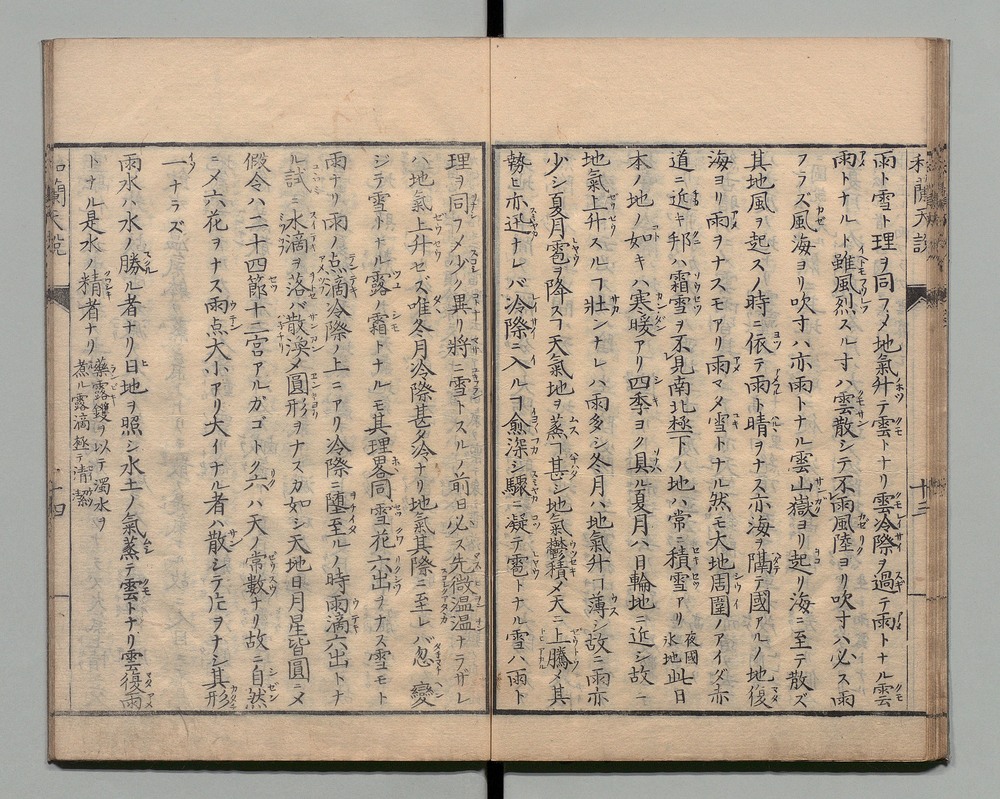 和蘭天説
十三
雨ト雪ト理ヲ同フメ地氣升テ雲トナリ雲冷際ヲ過テ雨トナル雲
雨トナルト雖風烈スル寸ハ雲散シテ不雨風陸ヨリ吹寸ハ必ス雨
フラズ風海ヨリ吹寸ハ亦雨トナル雲山嶽ヨリ起リ海ニ至テ散ズ
其地風ヲ起スノ時ニ依テ雨ト晴ヲナス亦海ヲ隔テ國アルノ地復
海ヨリ雨ヲナスモアリ雨マタ雪トナル然モ大地周圍ノアイダ赤
道ニ近キ邦ハ霜雪ヲ不見南北極下ノ地ハ常ニ積雪アリ夜國氷地此日
本ノ地ノ如キハ寒暖アリ四季ヨク具ル夏月ハ日輪地ニ近シ故ニ
地氣上升スルヿ壯ンナレハ雨多シ冬月ハ地氣升ヿ薄シ故ニ雨亦
少シ夏月雹ヲ降スヿ天氣地ヲ蒸ヿ甚シ地氣鬱積メ天ニ上騰メ其
勢ヒ亦迅ナレバ冷際ニ入ルヿ愈深シ驟ニ凝テ雹トナル雪ハ雨ト
理ヲ同フメ少ク異リ將ニ雪トスルノ前日必ス先微温温ナラザレ
ハ地氣上升セズ唯冬月冷際甚タ冷ナリ地氣其際ニ至レバ忽變
ジテ雪トナル露ノ霜トナルモ其理畧同雪花六出ヲナス雪モト
雨ナリ雨ノ点滴冷際ノ上ニアリ冷際ニ墮至ルノ時雨滴六出トナ
ル試ニ水滴ヲ落バ散渙メ圓形ヲナスカ如シ天地日月星皆圓ニメ
假令ハ二十四節十二宮アルガゴトク六ハ天ノ常數ナリ故ニ自然
ニメ六花ヲナス雨点大小アリ大イナル者ハ散シテ片ヲナシ其形
一ナラズ
雨水ハ水ノ勝ル者ナリ日地ヲ照シ水土ノ氣蒸テ雲トナリ雲復雨
トナル是水ノ精者ナリ藥露鑊ヲ以テ濁水ヲ
煮ル露滴極テ清潔
和蘭天説
十四